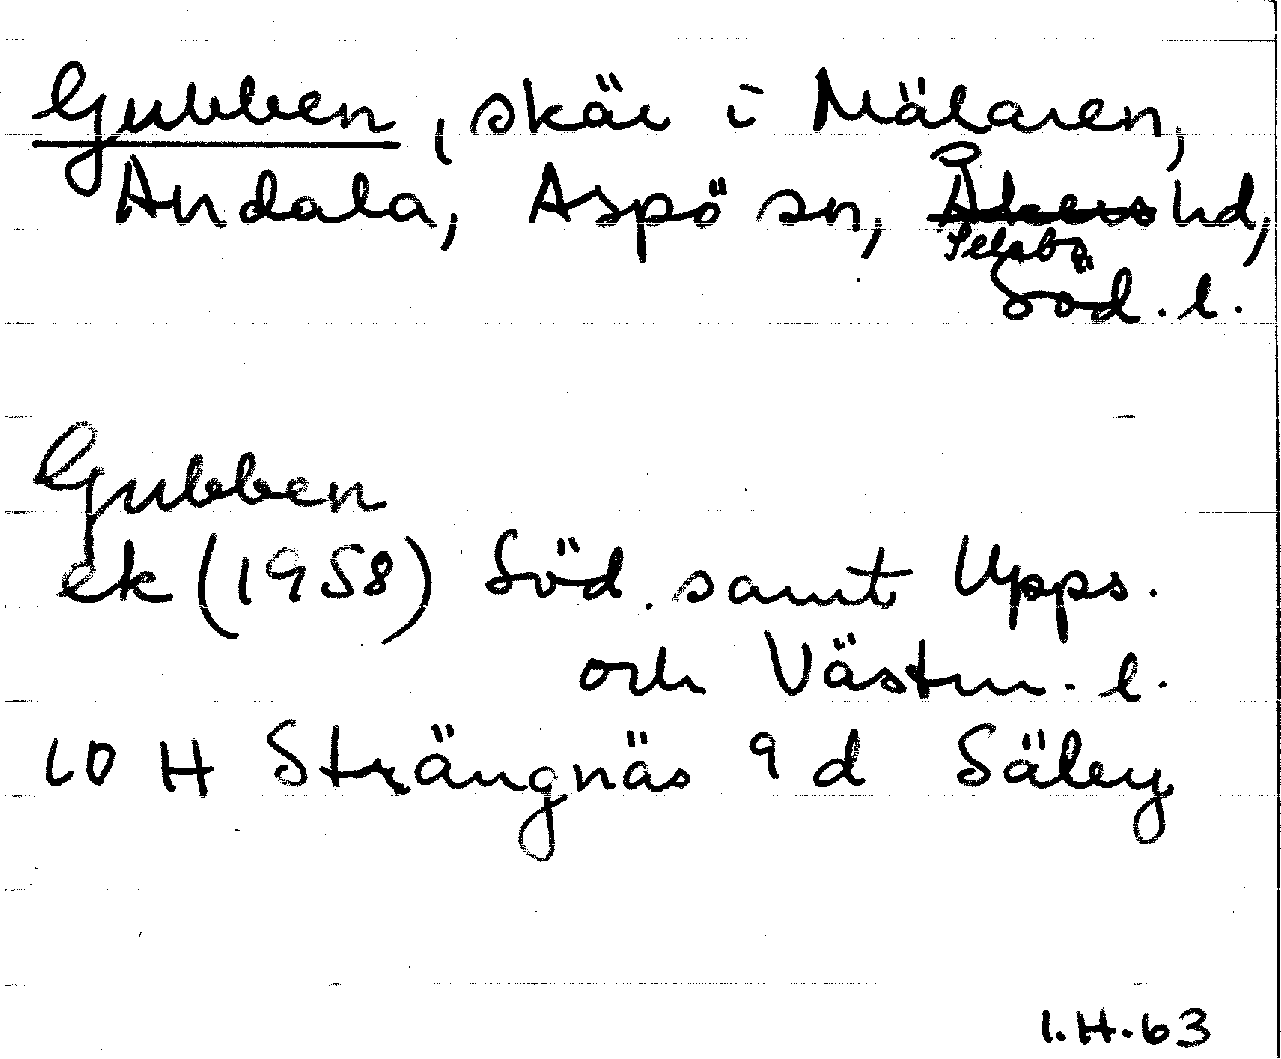 Gubben, skär i Mälaren,
Andala, Aspö sn, Åkers hd,
Selebo
Söd. l.
Gubben
ek (1958) Söd. samt Upps.
och Västm. l.
10 H Strängnäs 9 d Säby
I.H.63